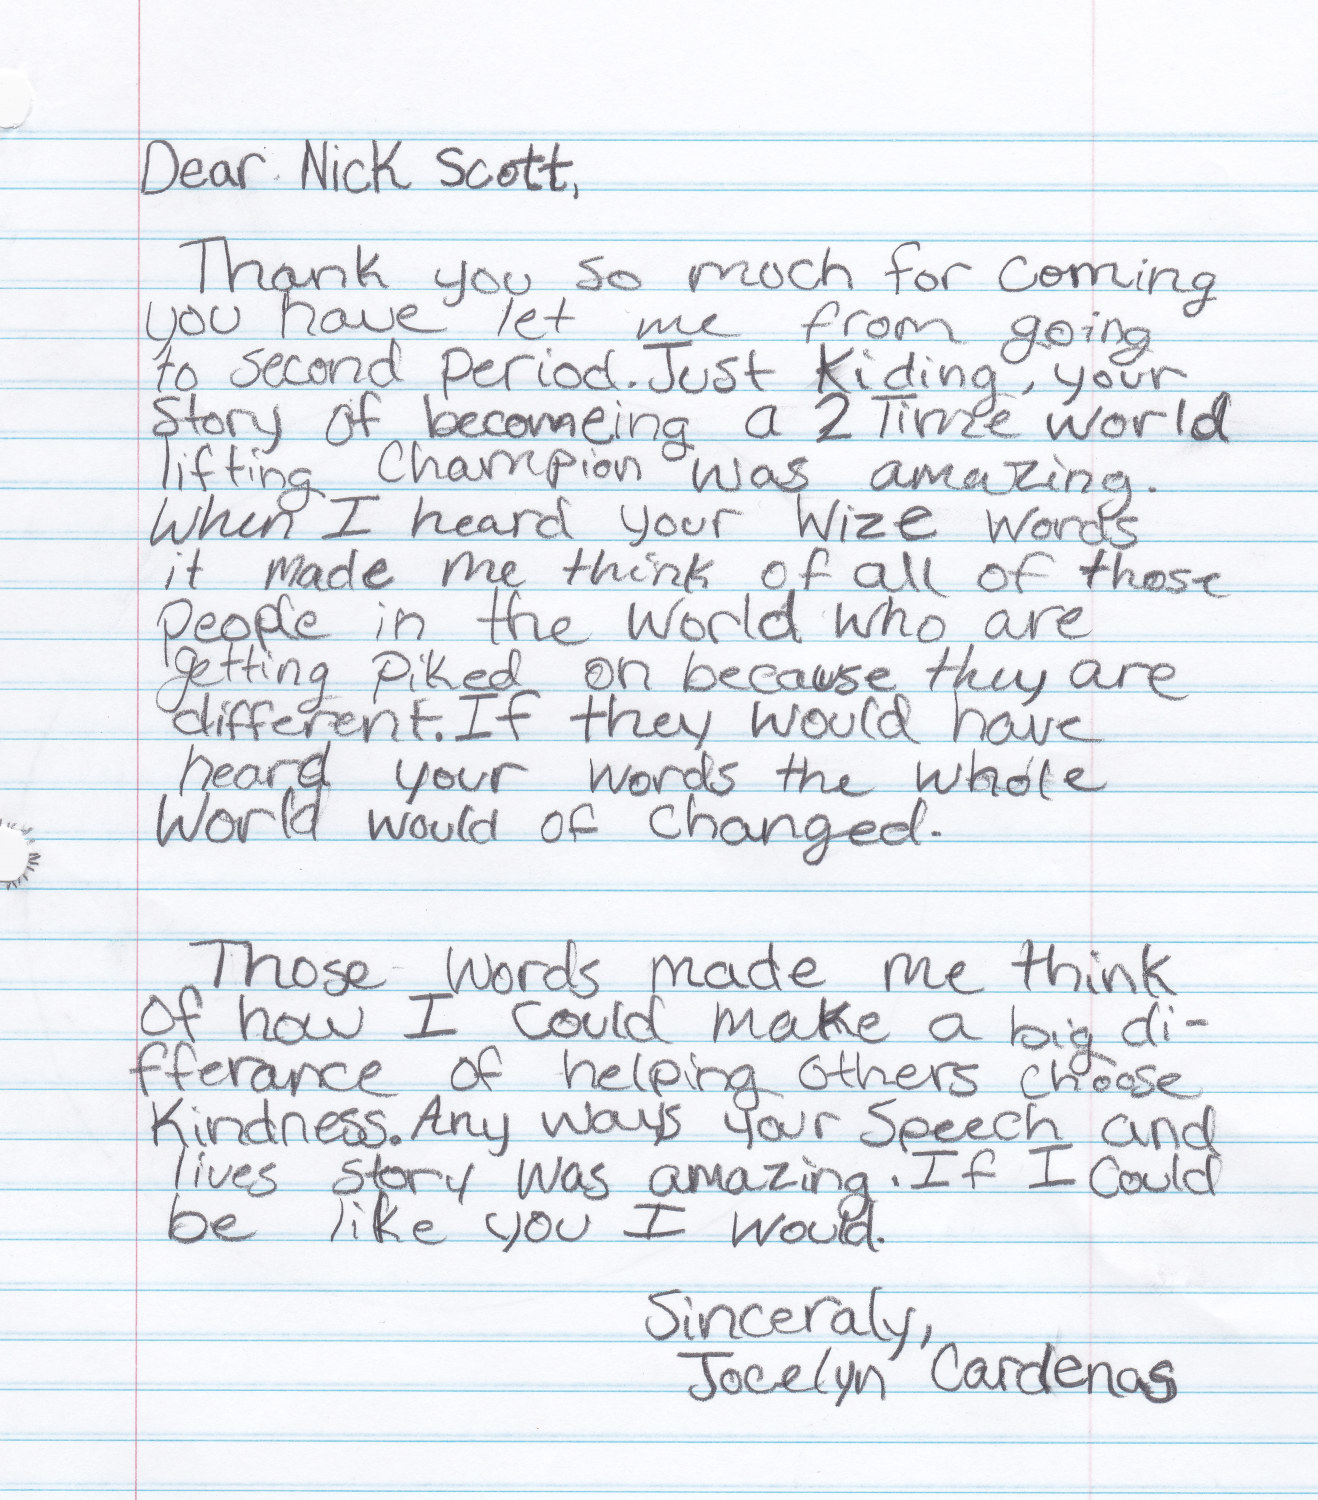 Dear Nick Scott,
Thank you so much for coming
you have let me from going
to second period. Just Kiding, your
story of becomeing a 2 Time world
lifting Champion was amazing.
When I heard your Wize words
it made me think of all of those
people in the World who are
getting Piked on because they are
different. If they would have
heard your words the whole
World would of changed.
Those words made me think
of how I could make a big di-
fferance of helping others choose
Kindness. Any ways your Speech and
lives story was amazing. If I Could
be like you I would.
Sinceraly,
Jocelyn Cardenas